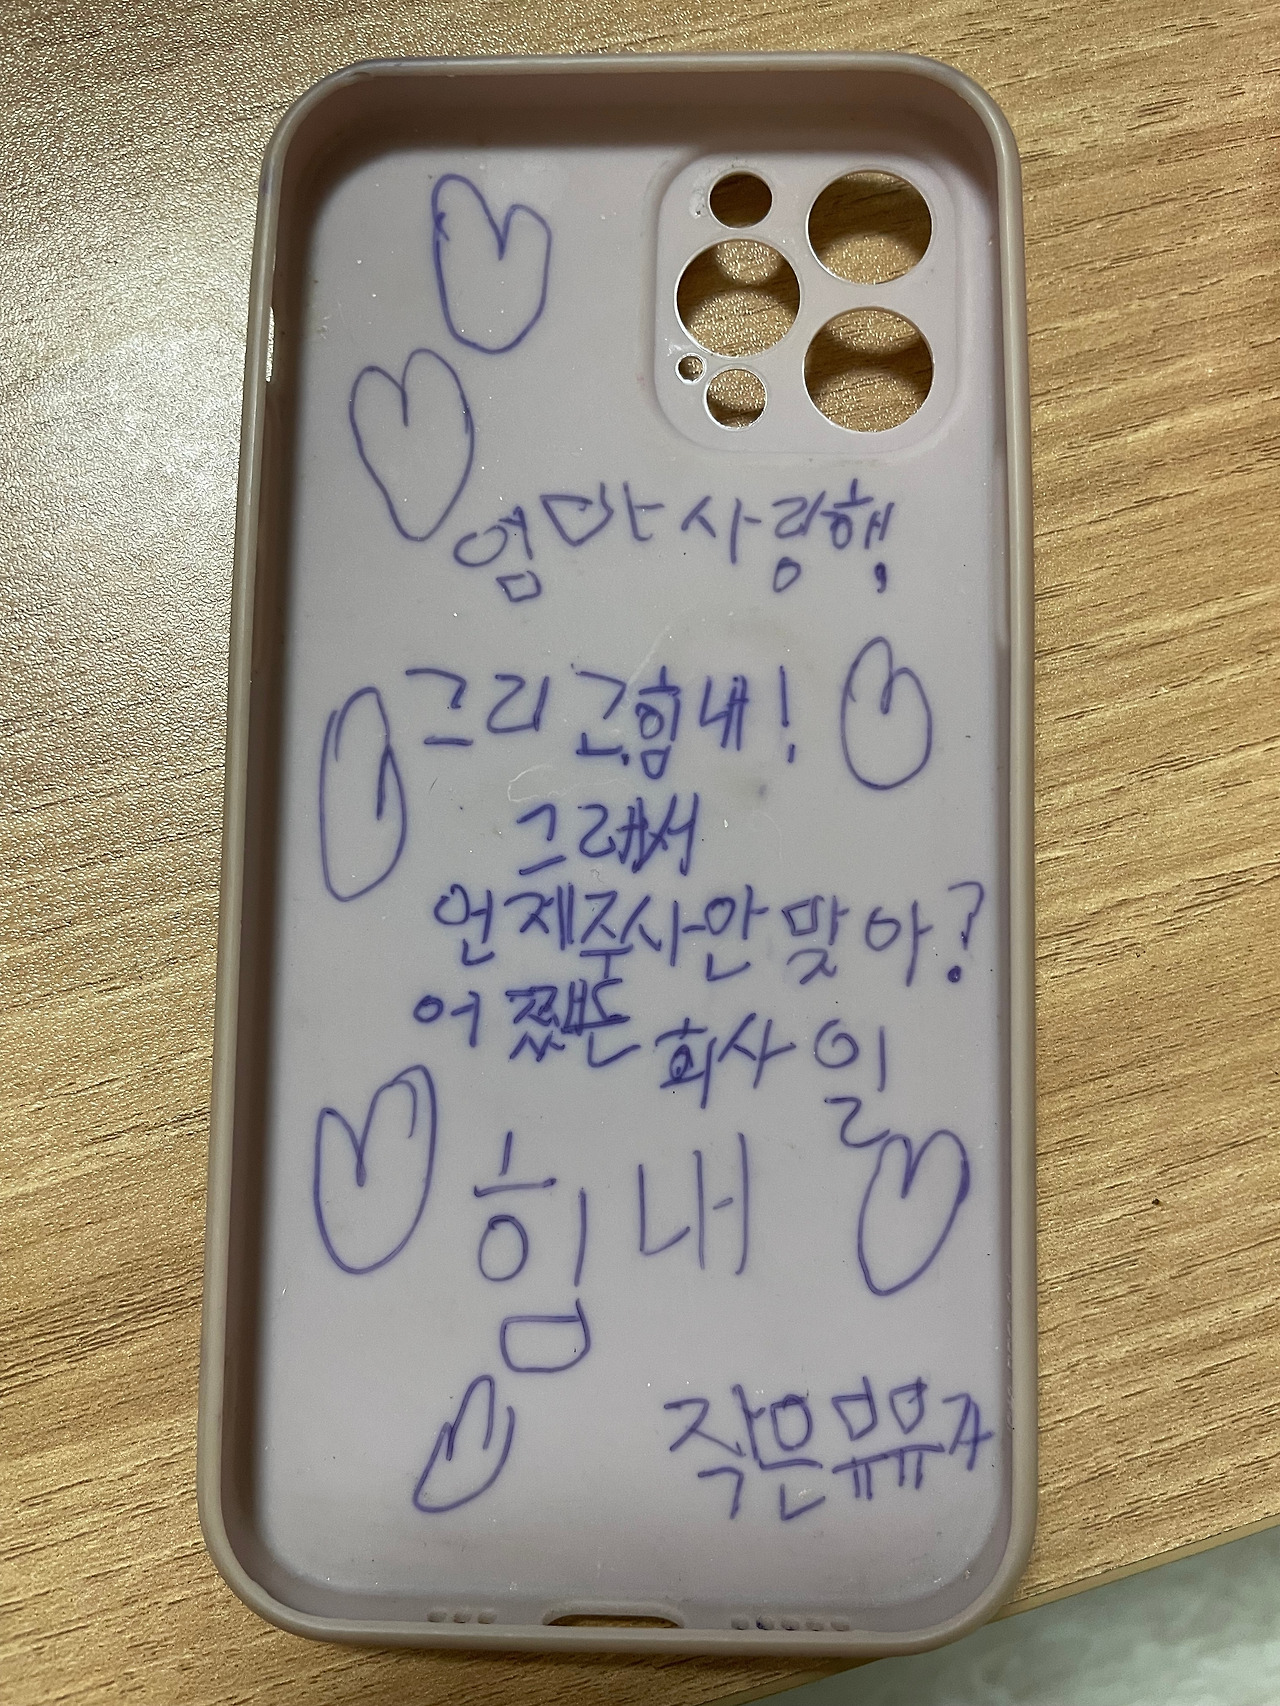 엄마 사랑해,
그리고 힘내!
그래서
언제주사안 맞아?
어쨌든 회사 일
힘내
작은뮤뮤가